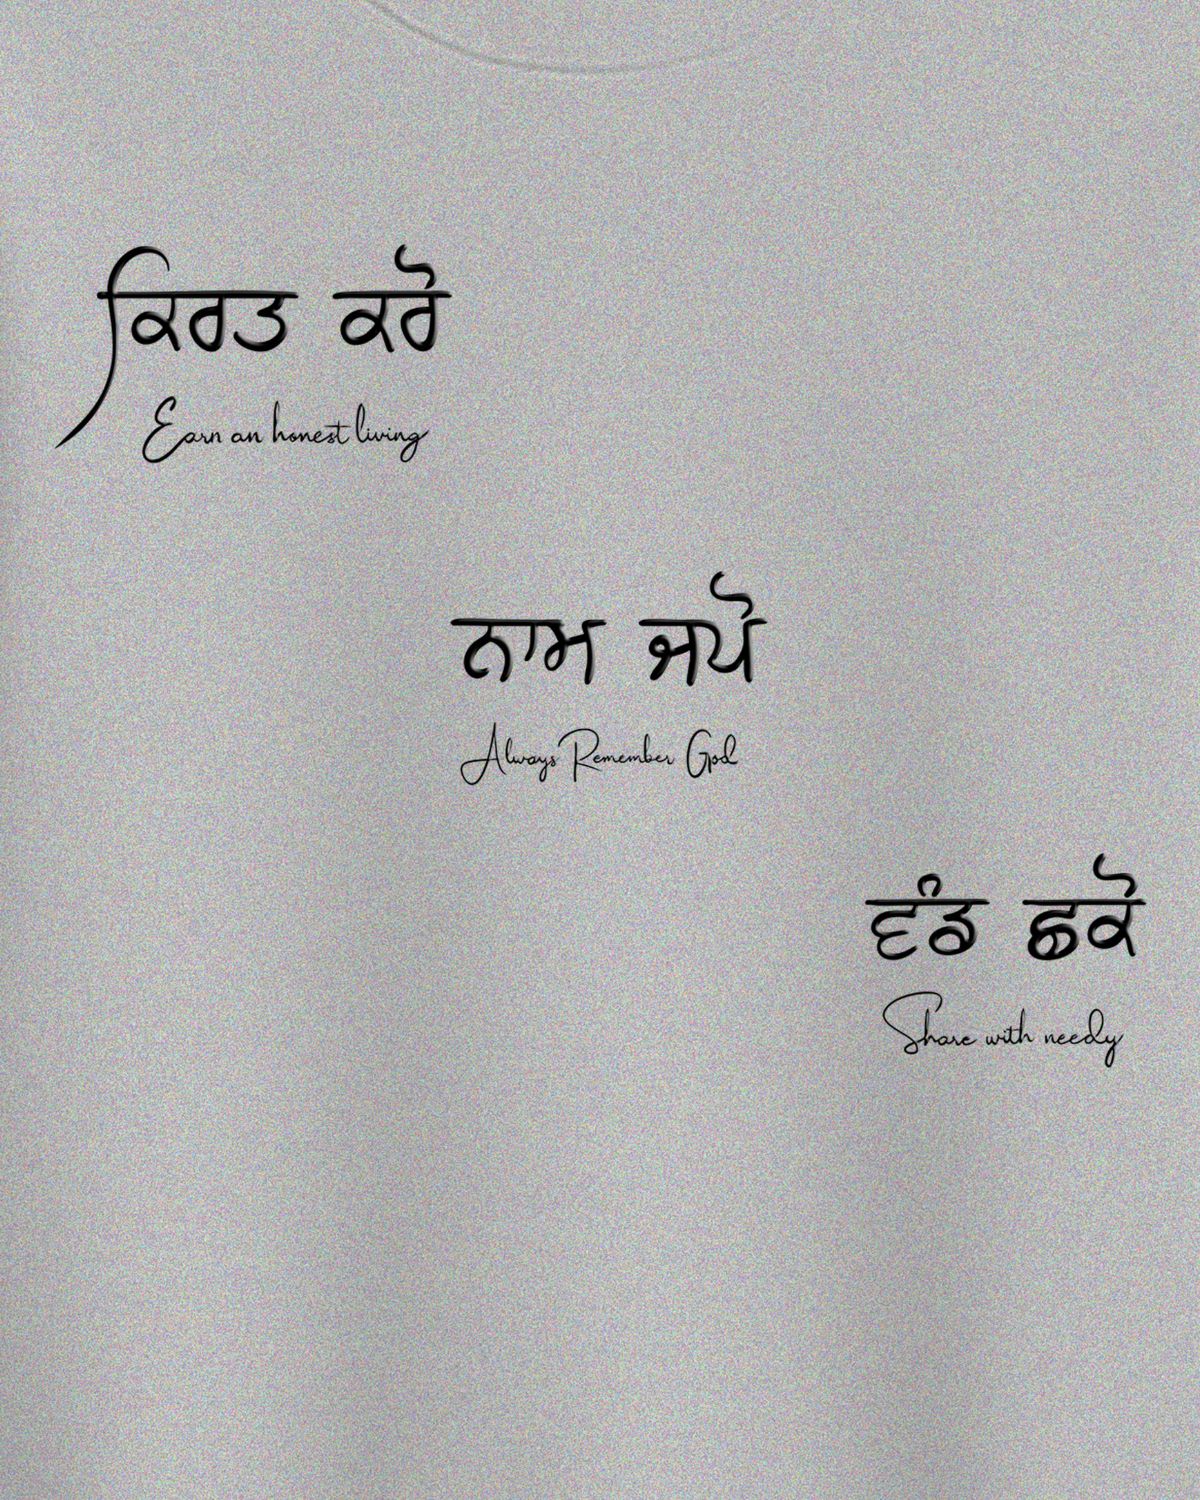 ਕਿਰਤ ਕਰੋ
Earn an honest living
ਨਾਮ ਜਪੋ
Always Remember God
ਵੰਡ ਛਕੋ
Share with needy